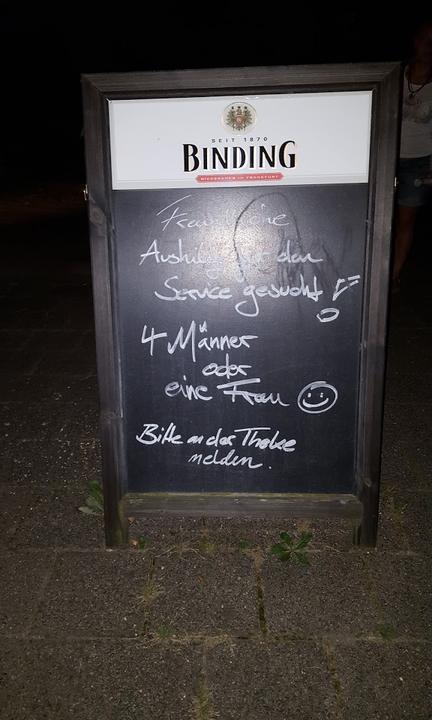 SEIT 1870
BINDING
BIERBRAUER IN FRANKFURT
Freundliche
Aushilfe für den
Service gesucht!
4 Männer
oder
eine Frau ☺
Bitte an der Theke
melden.